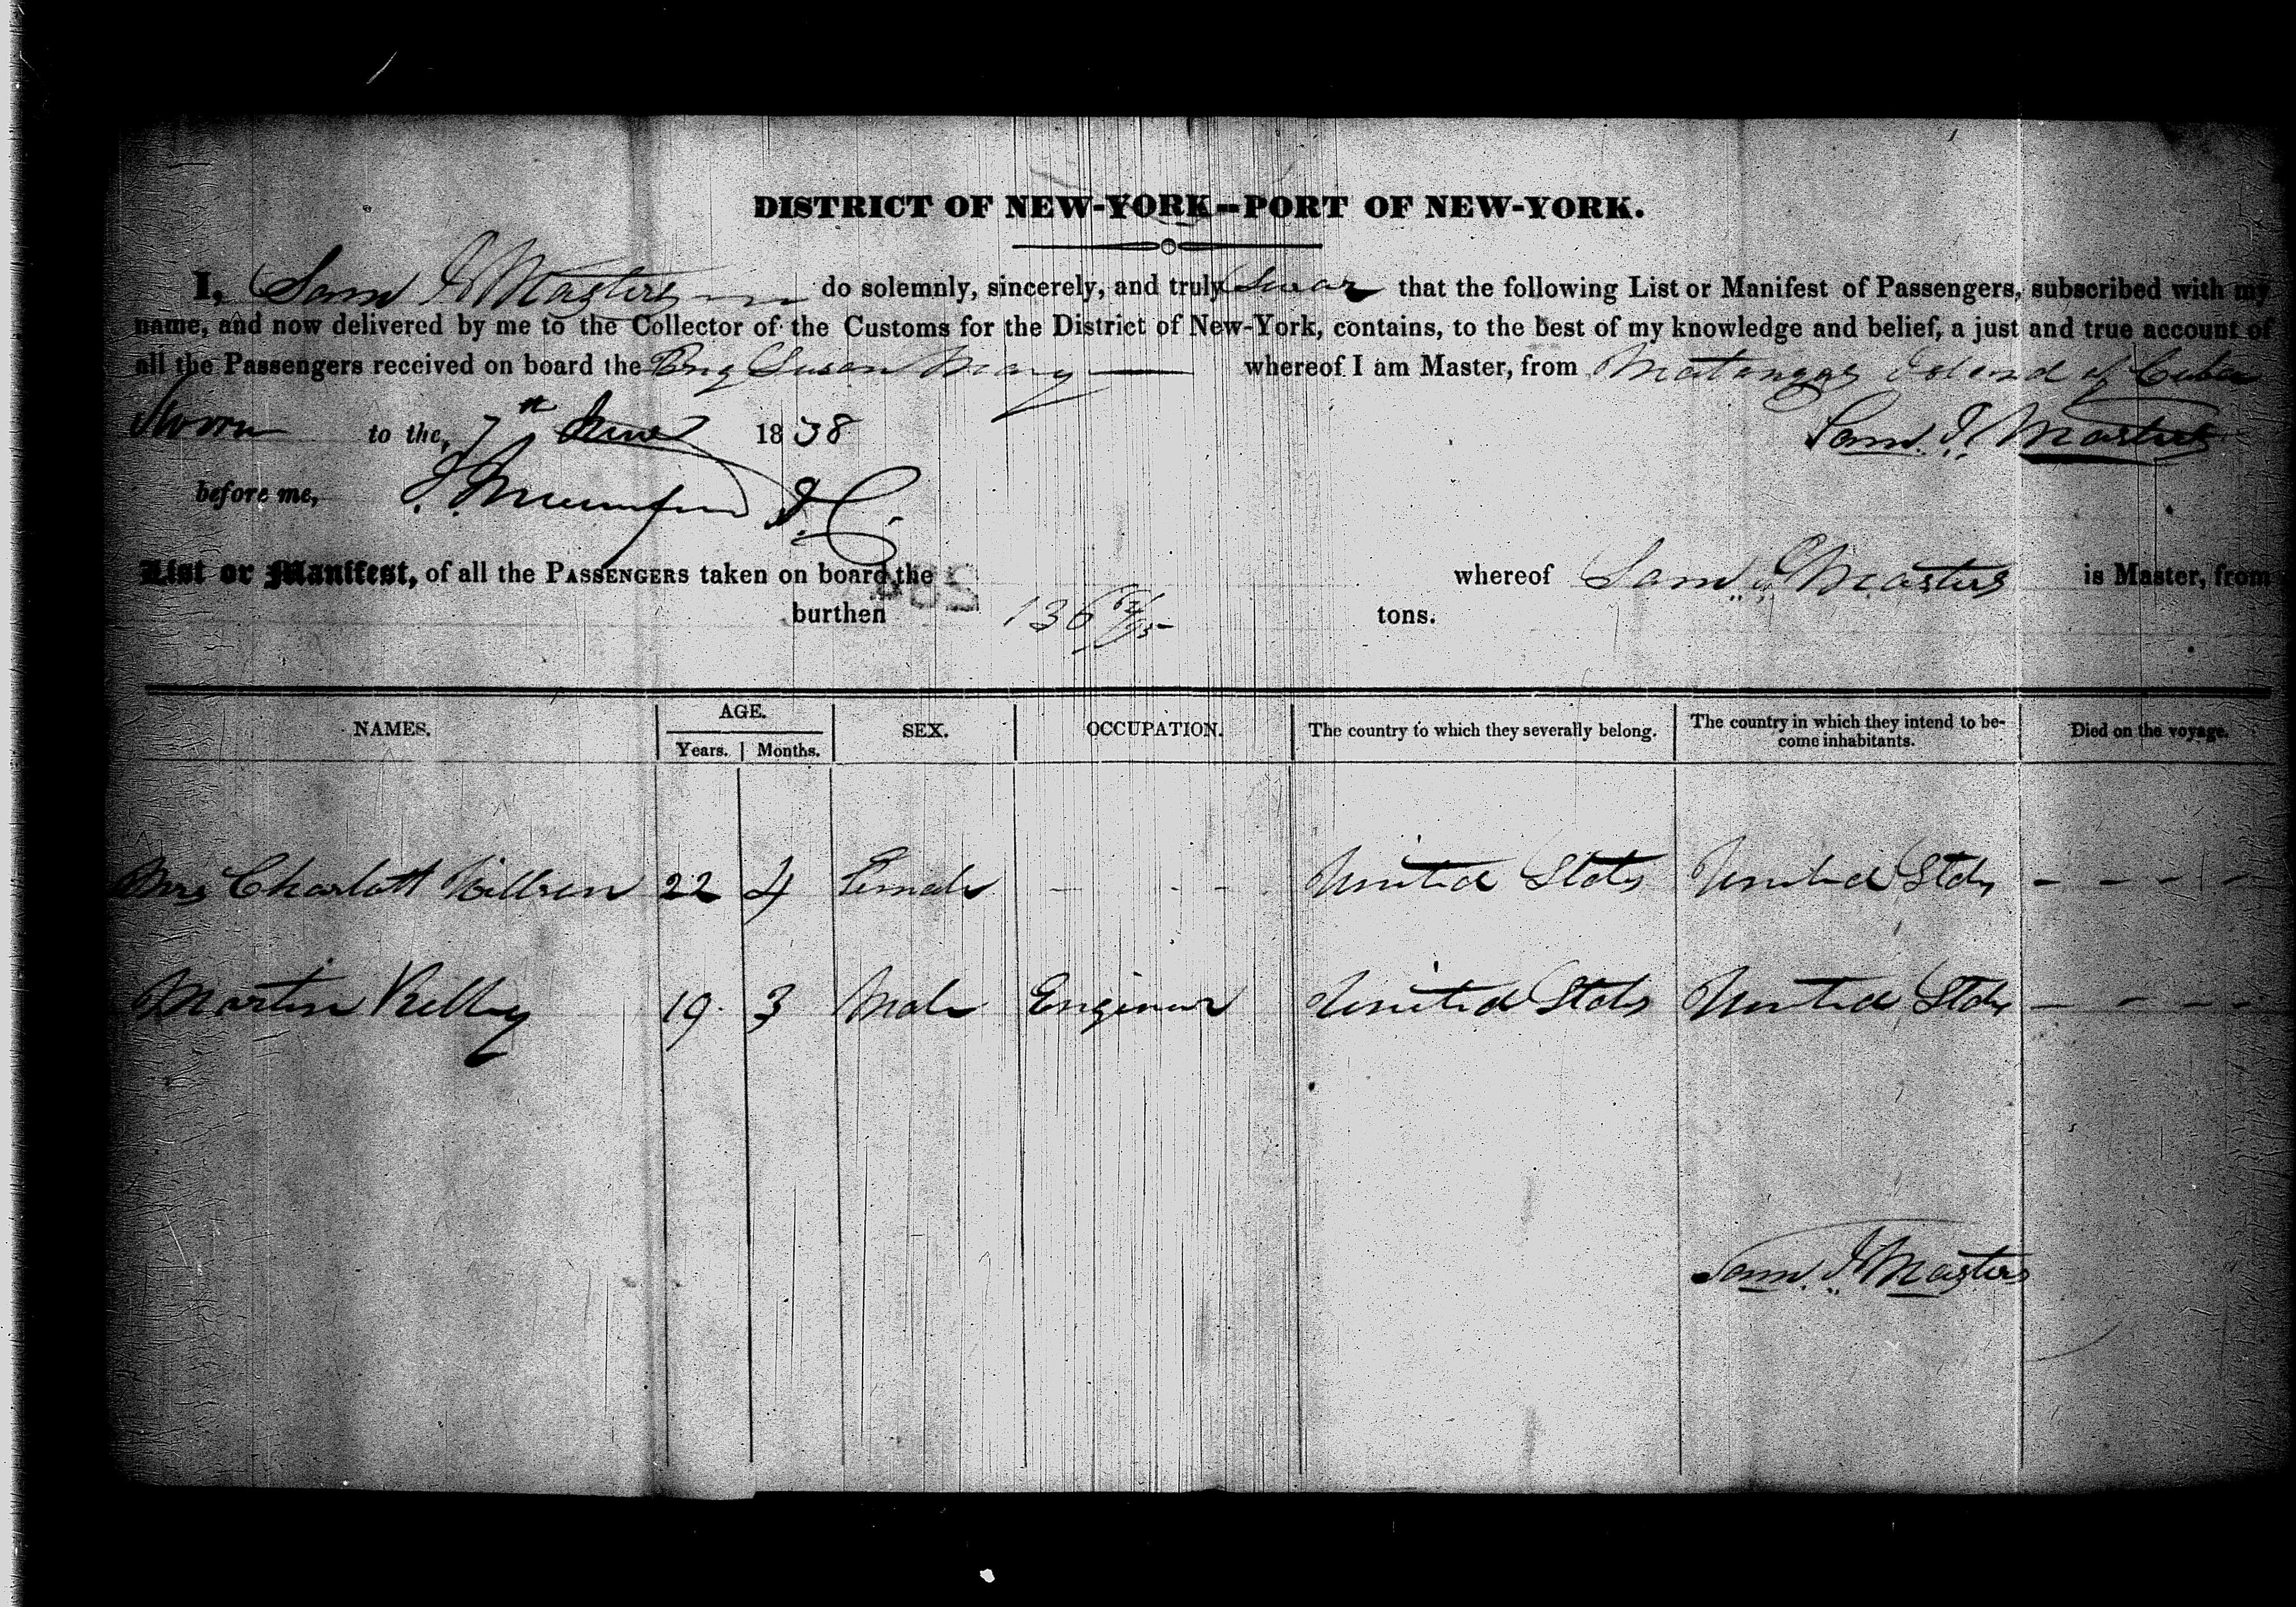 DISTRICT OF NEW-YORK--PORT OF NEW-YORK.
I, Sam J Masters do solemnly, sincerely, and truly Swear that the following List or Manifest of Passengers, subscribed with my
name, and now delivered by me to the Collector of the Customs for the District of New-York, contains, to the best of my knowledge and belief, a just and true account of
all the Passengers received on board the Brig Susan Mary whereof I am Master, from Matanzas Island of Cuba
Sworn to the, 7th June 1838 Sam. J. Masters
before me,
List or Manifest, of all the PASSENGERS taken on board the whereof Sam. J. Masters is Master, from
burthen 136 tons.
NAMES. AGE. SEX. OCCUPATION. The country to which they severally belong. The country in which they intend to be-
come inhabitants. Died on the voyage.
Years. Months.
Mrs Charlott 22 4 Female - - - United States United States - - - -
Martin Kelley 19 3 Male Engineer United States United States - - - -
Sam. J. Masters